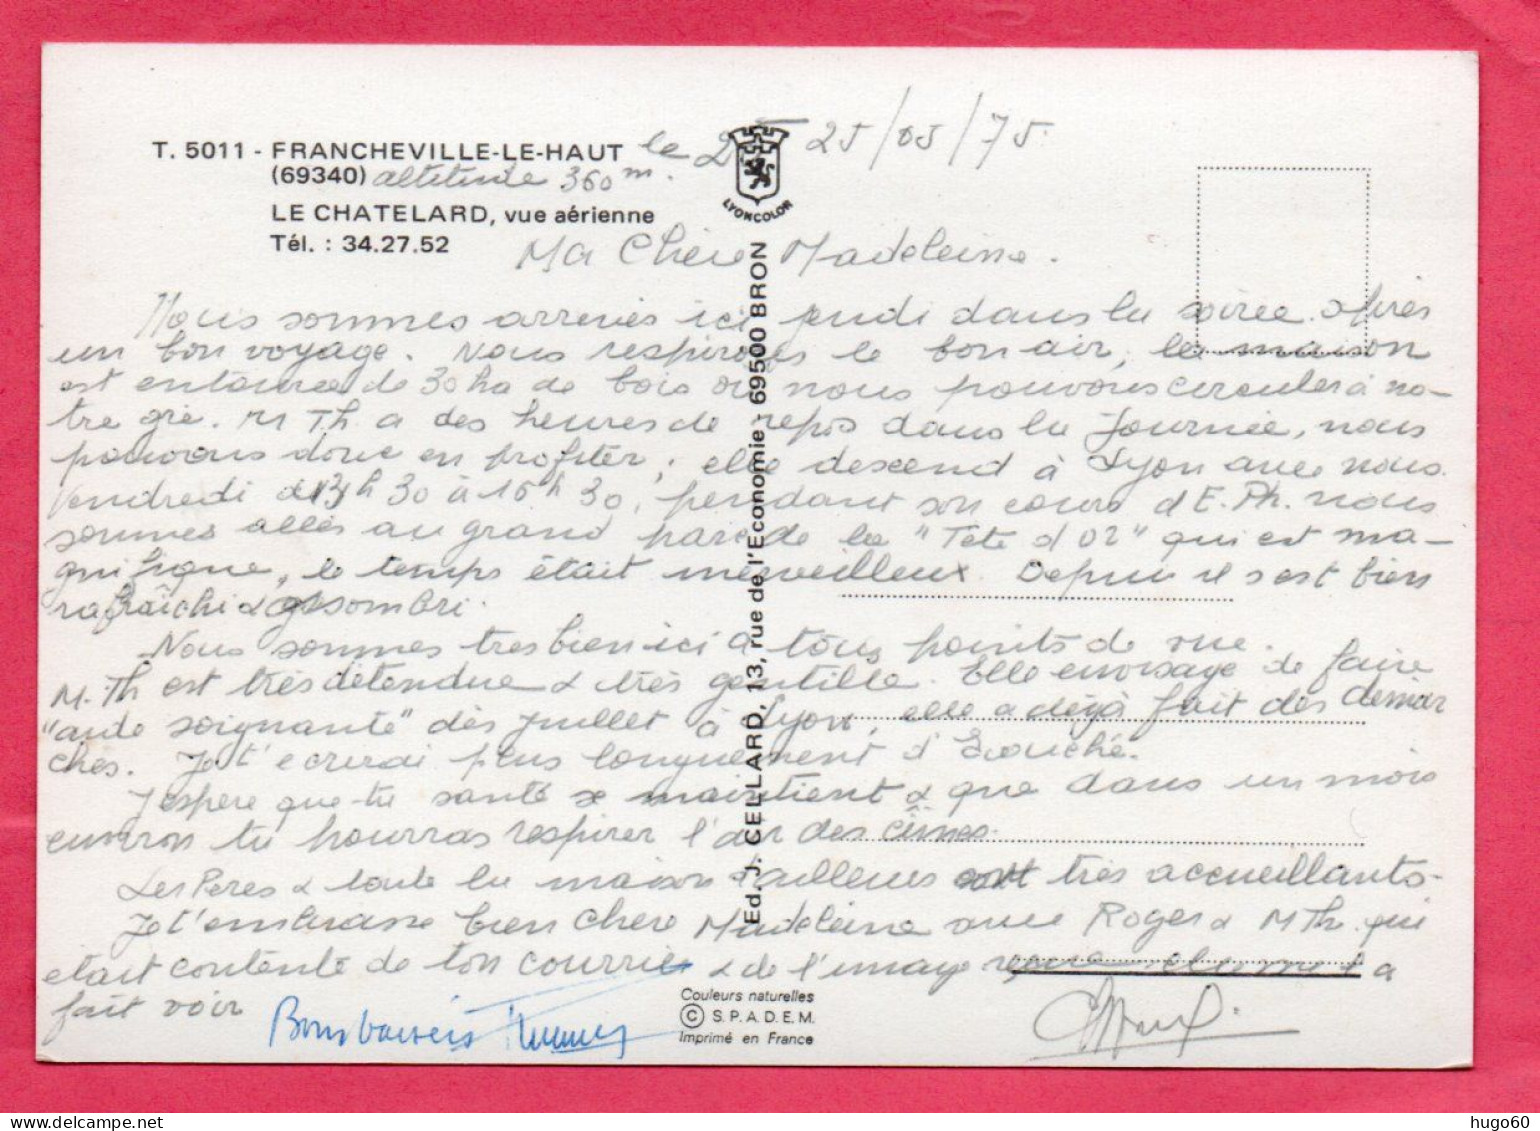 T. 5011 - FRANCHEVILLE-LE-HAUT le 25/05/75.
(69340) altitude 360 m.
LE CHATELARD, vue aérienne
Tél. : 34.27.52
LYONCOLOR
Ma Chère Madeleine.
Nous sommes arrivés ici jeudi dans la soirée après
un bon voyage. Nous respirons le bon air, la maison
est entourée de 30 ha de bois où nous pouvons circuler à no-
tre gré. M Th. a des heures de repos dans la journée, nous
pouvons donc en profiter, elle descend à Lyon avec nous
Vendredi de 13h 30 à 16h 30, pendant son cours d'E. Ph. nous
sommes allés au grand parc de la "Tête d'Or" qui est ma-
gnifique, le temps était merveilleux. Depuis il s'est bien
rafraîchi & assombri.
Nous sommes très bien ici à tous points de vue.
M. Th est très détendue & très gentille. Elle envisage de faire
"aide soignante" dès juillet à Lyon, elle a déjà fait des démar
ches. Je t'écrirai plus longuement d'Ecouché.
J'espère que ta santé se maintient & que dans un mois
environ tu pourras respirer l'air des cîmes.
Les Pères & toute la maison d'ailleurs sont très accueillants.
Je t'embrasse bien chère Madeleine avec Roger & M Th. qui
était contente de ton courrier & de l'image a
fait voir
Bons baisers
Ed. J. CELLARD, 13, rue de l'Economie - 69500 BRON
Couleurs naturelles
© S.P.A.D.E.M.
Imprimé en France
hugo60